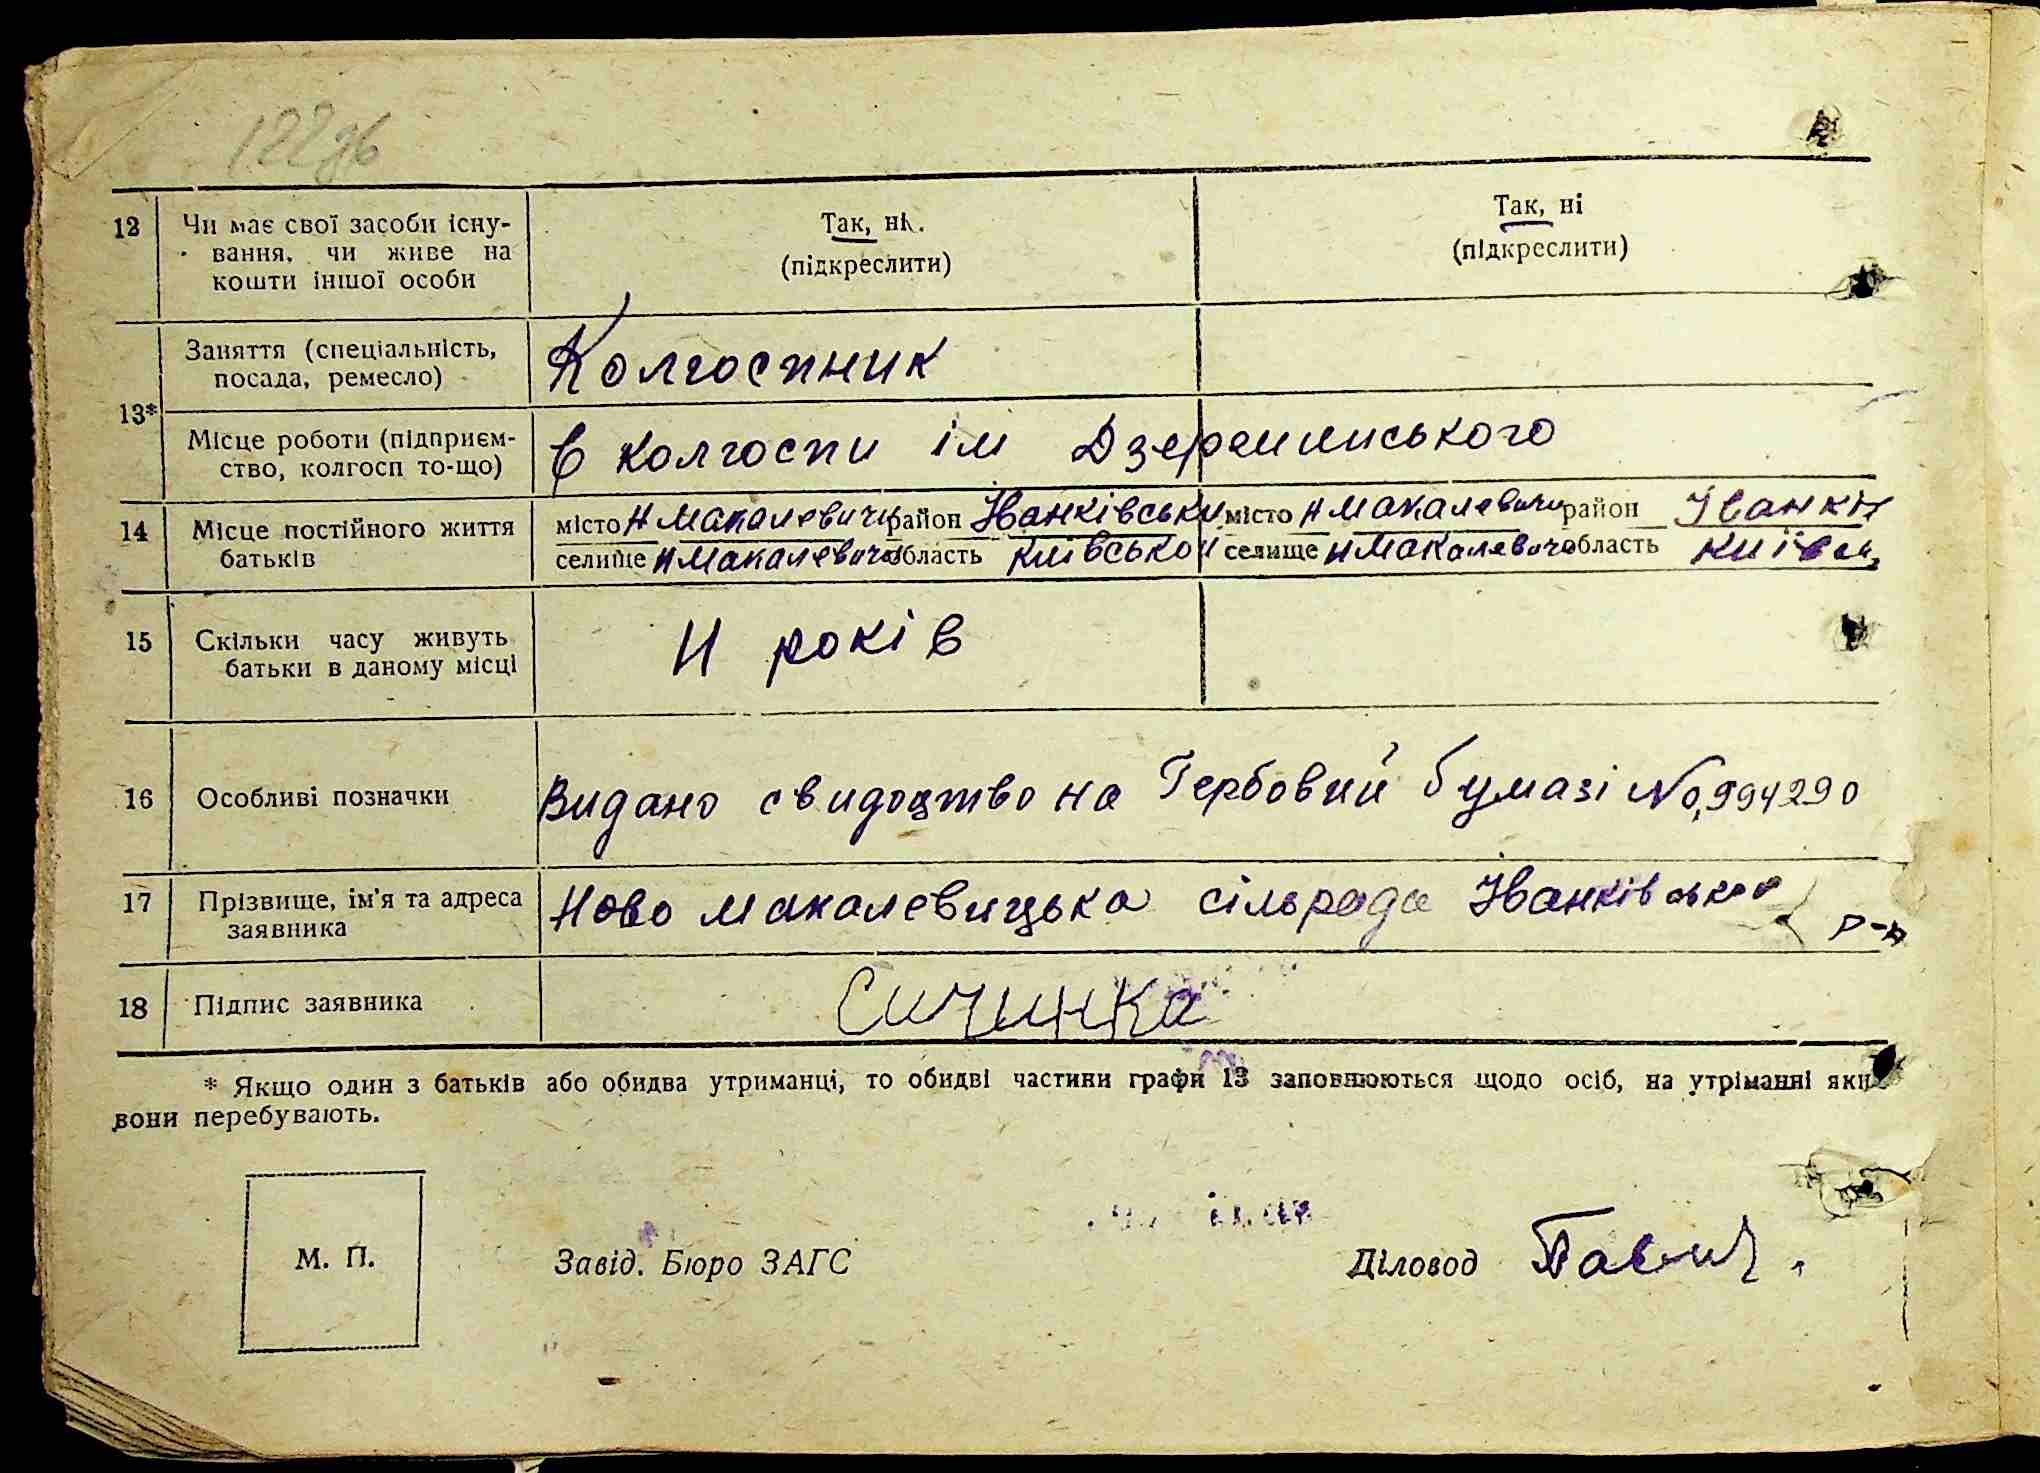 122зв
12 Чи має свої засоби існу-
вання, чи живе на
кошти іншої особи
Так, ні.
(підкреслити)
Так, ні
(підкреслити)
13*
Заняття (спеціальність,
посада, ремесло)
Колгоспник
Місце роботи (підприєм-
ство, колгосп то-що)
в колгоспи ім Дзержинського
14 Місце постійного життя
батьків
місто Н Макалевичи район Іванківськи
селище Н Макалевичи область київської
місто Н Макалевичи район Іванкі
селище Н Макалевичи область київсь
15 Скільки часу живуть
батьки в даному місці
11 років
16 Особливі позначки
Видано свидоцтво на Гербовий бумазі No 994290
17 Прізвище, ім'я та адреса
заявника
Ново макалевицька сільрада Іванківського р-н
18 Підпис заявника
Сичинка
* Якщо один з батьків або обидва утриманці, то обидві частини графи 13 заповнюються щодо осіб, на утріманні яких
вони перебувають.
М. П.
Завід. Бюро ЗАГС
Діловод